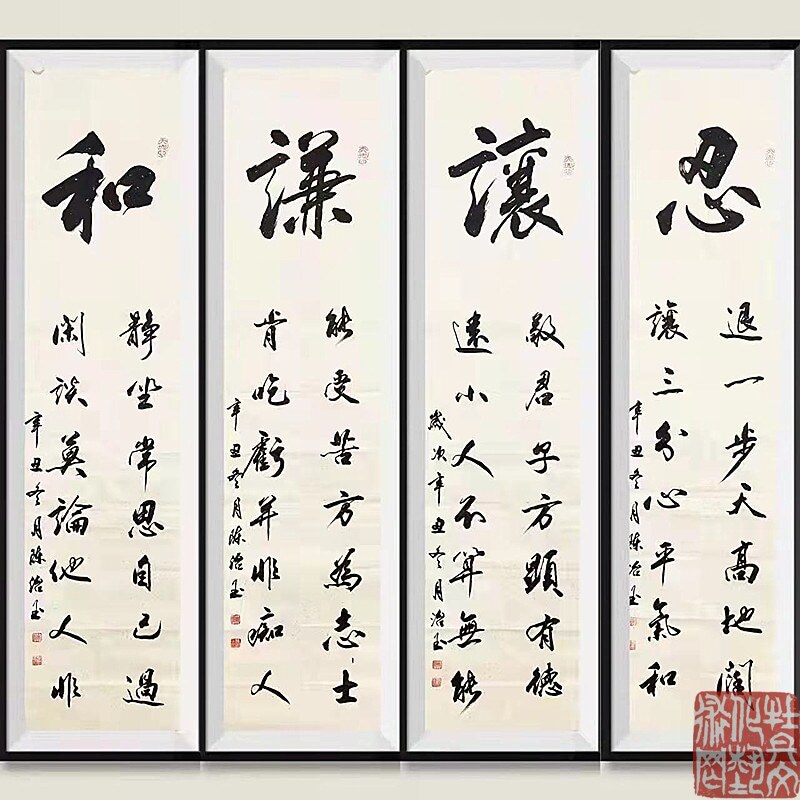 忍
退一步天高地阔
讓三分心平氣和
辛丑冬月陈治玉
讓
敬君子方顯有德
遠小人不算無能
歲次辛丑冬月治玉
謙
能受苦方為志士
肯吃虧并非痴人
辛丑冬月陈治玉
和
靜坐常思自己過
闲谈莫論他人非
辛丑冬月陈治玉